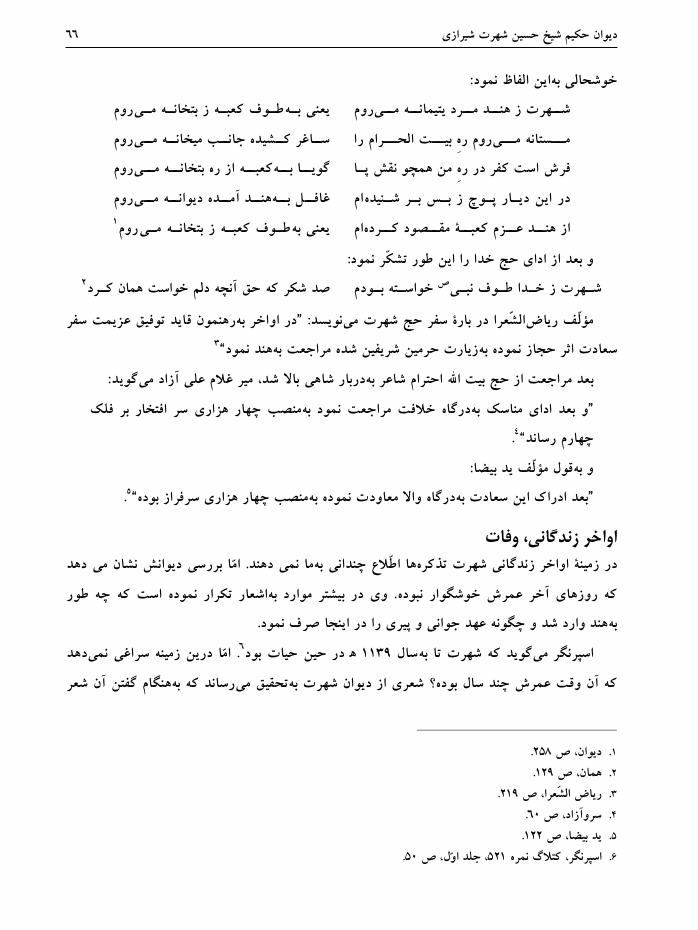 دیوان حکیم شیخ حسین شهرت شیرازی ۶۶
خوشحالی به‌این الفاظ نمود:
شهرت ز هند مرد یتیمانه می‌روم یعنی به‌طوف کعبه ز بتخانه می‌روم
مستانه می‌روم رهِ بیت الحرام را ساغر کشیده جانب میخانه می‌روم
فرش است کفر در رهِ من همچو نقش پا گویا به‌کعبه از ره بتخانه می‌روم
در این دیار پوچ ز بس بر شنیده‌ام غافل به‌هند آمده دیوانه می‌روم
از هند عزم کعبهٔ مقصود کرده‌ام یعنی به‌طوف کعبه ز بتخانه می‌روم۱
و بعد از ادای حج خدا را این طور تشکّر نمود:
شهرت ز خدا طوف نبی‌ص خواسته بودم صد شکر که حق آنچه دلم خواست همان کرد۲
مؤلّف ریاض‌الشّعرا در بارهٔ سفر حج شهرت می‌نویسد: ”در اواخر به‌رهنمون قاید توفیق عزیمت سفر
سعادت اثر حجاز نموده به‌زیارت حرمین شریفین شده مراجعت به‌هند نمود“۳
بعد مراجعت از حج بیت الله احترام شاعر به‌دربار شاهی بالا شد، میر غلام علی آزاد می‌گوید:
”و بعد ادای مناسک به‌درگاه خلافت مراجعت نمود به‌منصب چهار هزاری سر افتخار بر فلک
چهارم رساند“۴.
و به‌قول مؤلّف ید بیضا:
”بعد ادراک این سعادت به‌درگاه والا معاودت نموده به‌منصب چهار هزاری سرفراز بوده“۵.
اواخر زندگانی، وفات
در زمینهٔ اواخر زندگانی شهرت تذکره‌ها اطّلاع چندانی به‌ما نمی دهند. امّا بررسی دیوانش نشان می دهد
که روزهای آخر عمرش خوشگوار نبوده. وی در بیشتر موارد به‌اشعار تکرار نموده است که چه طور
به‌هند وارد شد و چگونه عهد جوانی و پیری را در اینجا صرف نمود.
اسپرنگر می‌گوید که شهرت تا به‌سال ۱۱۳۹ ه‍ در حین حیات بود۶. امّا درین زمینه سراغی نمی‌دهد
که آن وقت عمرش چند سال بوده؟ شعری از دیوان شهرت به‌تحقیق می‌رساند که به‌هنگام گفتن آن شعر
۱. دیوان، ص ۲۵۸.
۲. همان، ص ۱۲۹.
۳. ریاض الشّعرا، ص ۲۱۹.
۴. سروآزاد، ص ۶۰.
۵. ید بیضا، ص ۱۲۲.
۶. اسپرنگر، کتلاگ نمره ۵۲۱، جلد اوّل، ص ۵۰.